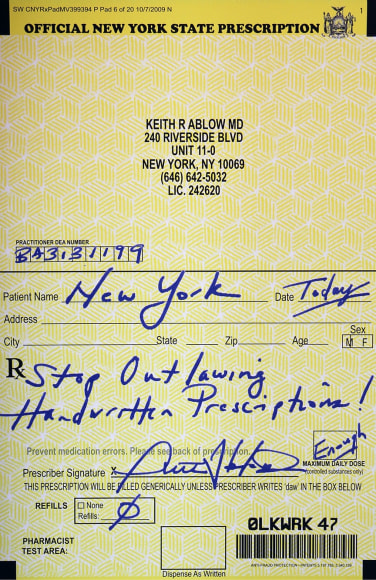 SW CNYRxPadMV399394 P Pad 6 of 20 10/7/2009 N
1
OFFICIAL NEW YORK STATE PRESCRIPTION
KEITH R ABLOW MD
240 RIVERSIDE BLVD
UNIT 11-0
NEW YORK, NY 10069
(646) 642-5032
LIC. 242620
PRACTITIONER DEA NUMBER
BA3131199
Patient Name New York Date Today
Address
Sex
City State Zip Age M F
Rx Stop Outlawing
Handwritten Prescriptions!
Enough
Prevent medication errors. Please see back of prescription.
MAXIMUM DAILY DOSE
(controlled substances only)
Prescriber Signature X
THIS PRESCRIPTION WILL BE FILLED GENERICALLY UNLESS PRESCRIBER WRITES 'daw' IN THE BOX BELOW
REFILLS None
Refills: Ø
0LKWRK 47
PHARMACIST
TEST AREA:
Dispense As Written